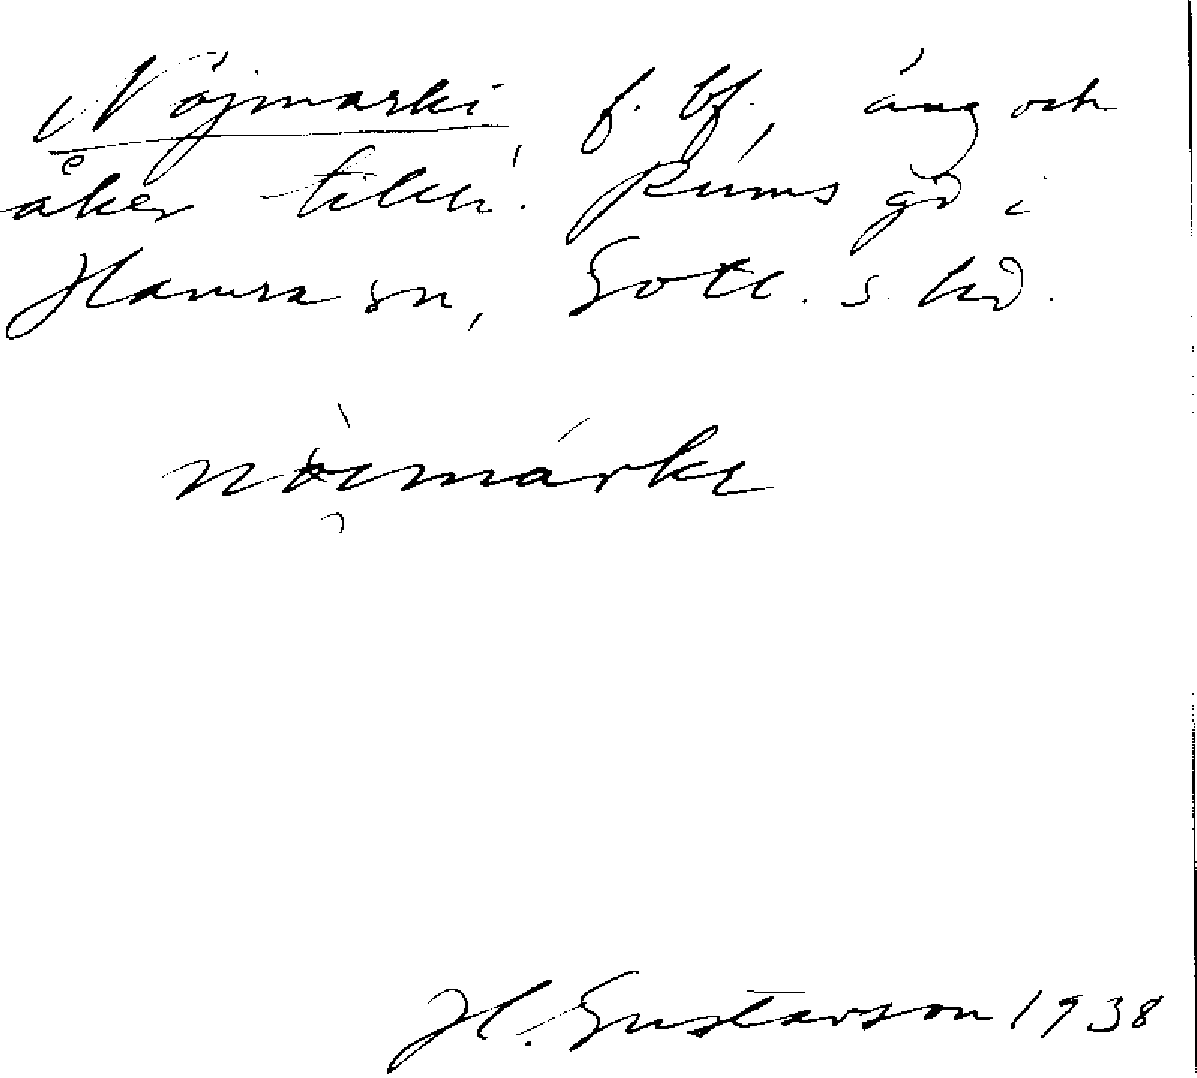 Nöjmarki f. bf., äng och
åker tillh. Rums gd i
Hamra sn, Gotl. s. hd.
nòimárkɩ
H. Gustavson 1938